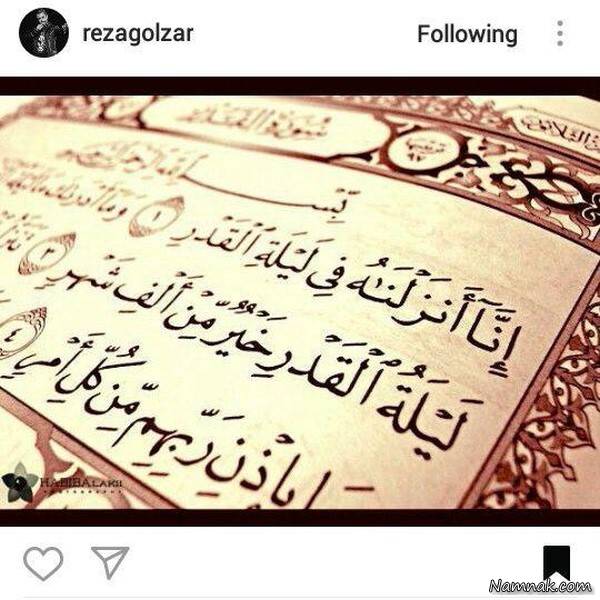 rezagolzar
Following
سُورَةُ القَدْرِ
بِسْمِ اللَّهِ الرَّحْمَٰنِ الرَّحِيمِ
إِنَّآ أَنزَلْنَٰهُ فِي لَيْلَةِ ٱلْقَدْرِ ١ وَمَآ أَدْرَىٰكَ مَا لَيْلَةُ
لَيْلَةُ ٱلْقَدْرِ خَيْرٌ مِّنْ أَلْفِ شَهْرٍ ٣
بِإِذْنِ رَبِّهِم مِّن كُلِّ أَمْرٍ ٤
HABIBALAHII
PHOTOGRAPHY
Namnak.com